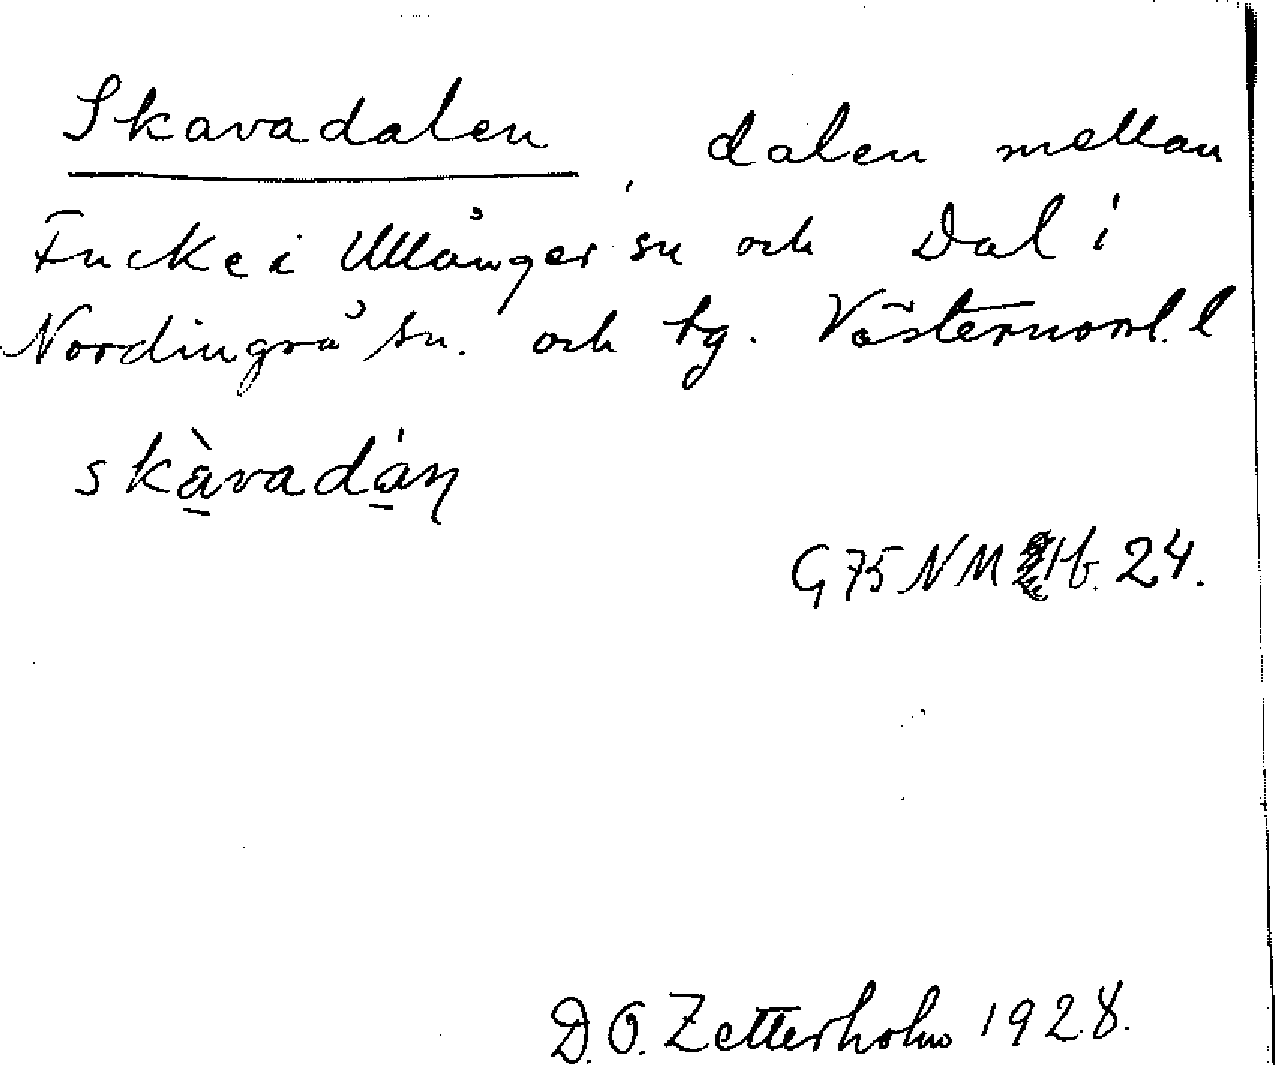 Skavadalen, dalen mellan
Fucke i Ullånger sn och Dal i
Nordingrå sn. och tg. Västernorrl. l
skàvadáɳ
G 75 NM Hb. 24.
D. O. Zetterholm 1928.